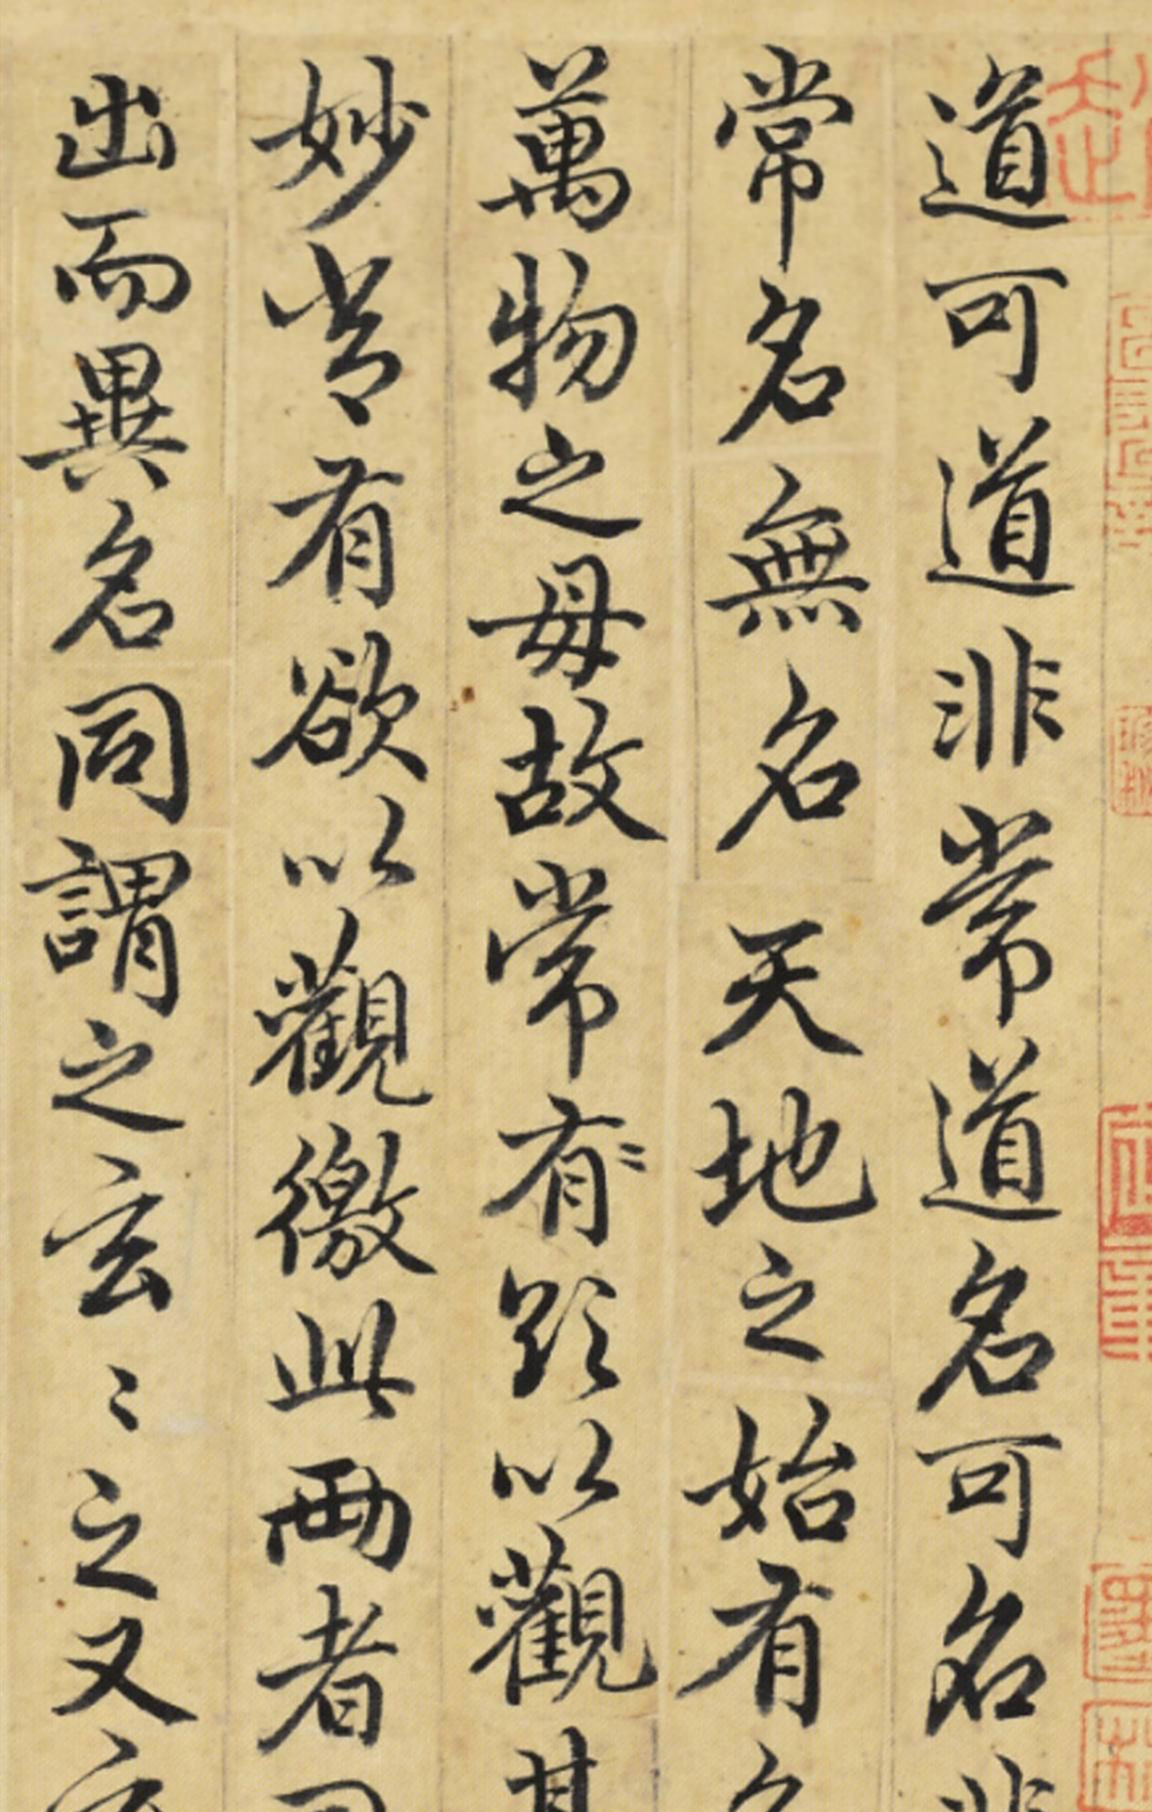 道可道非常道名可名非
常名無名天地之始有名
萬物之母故常有以觀其
妙常有欲以觀徼此兩者同
出而異名同謂之玄〻之又玄